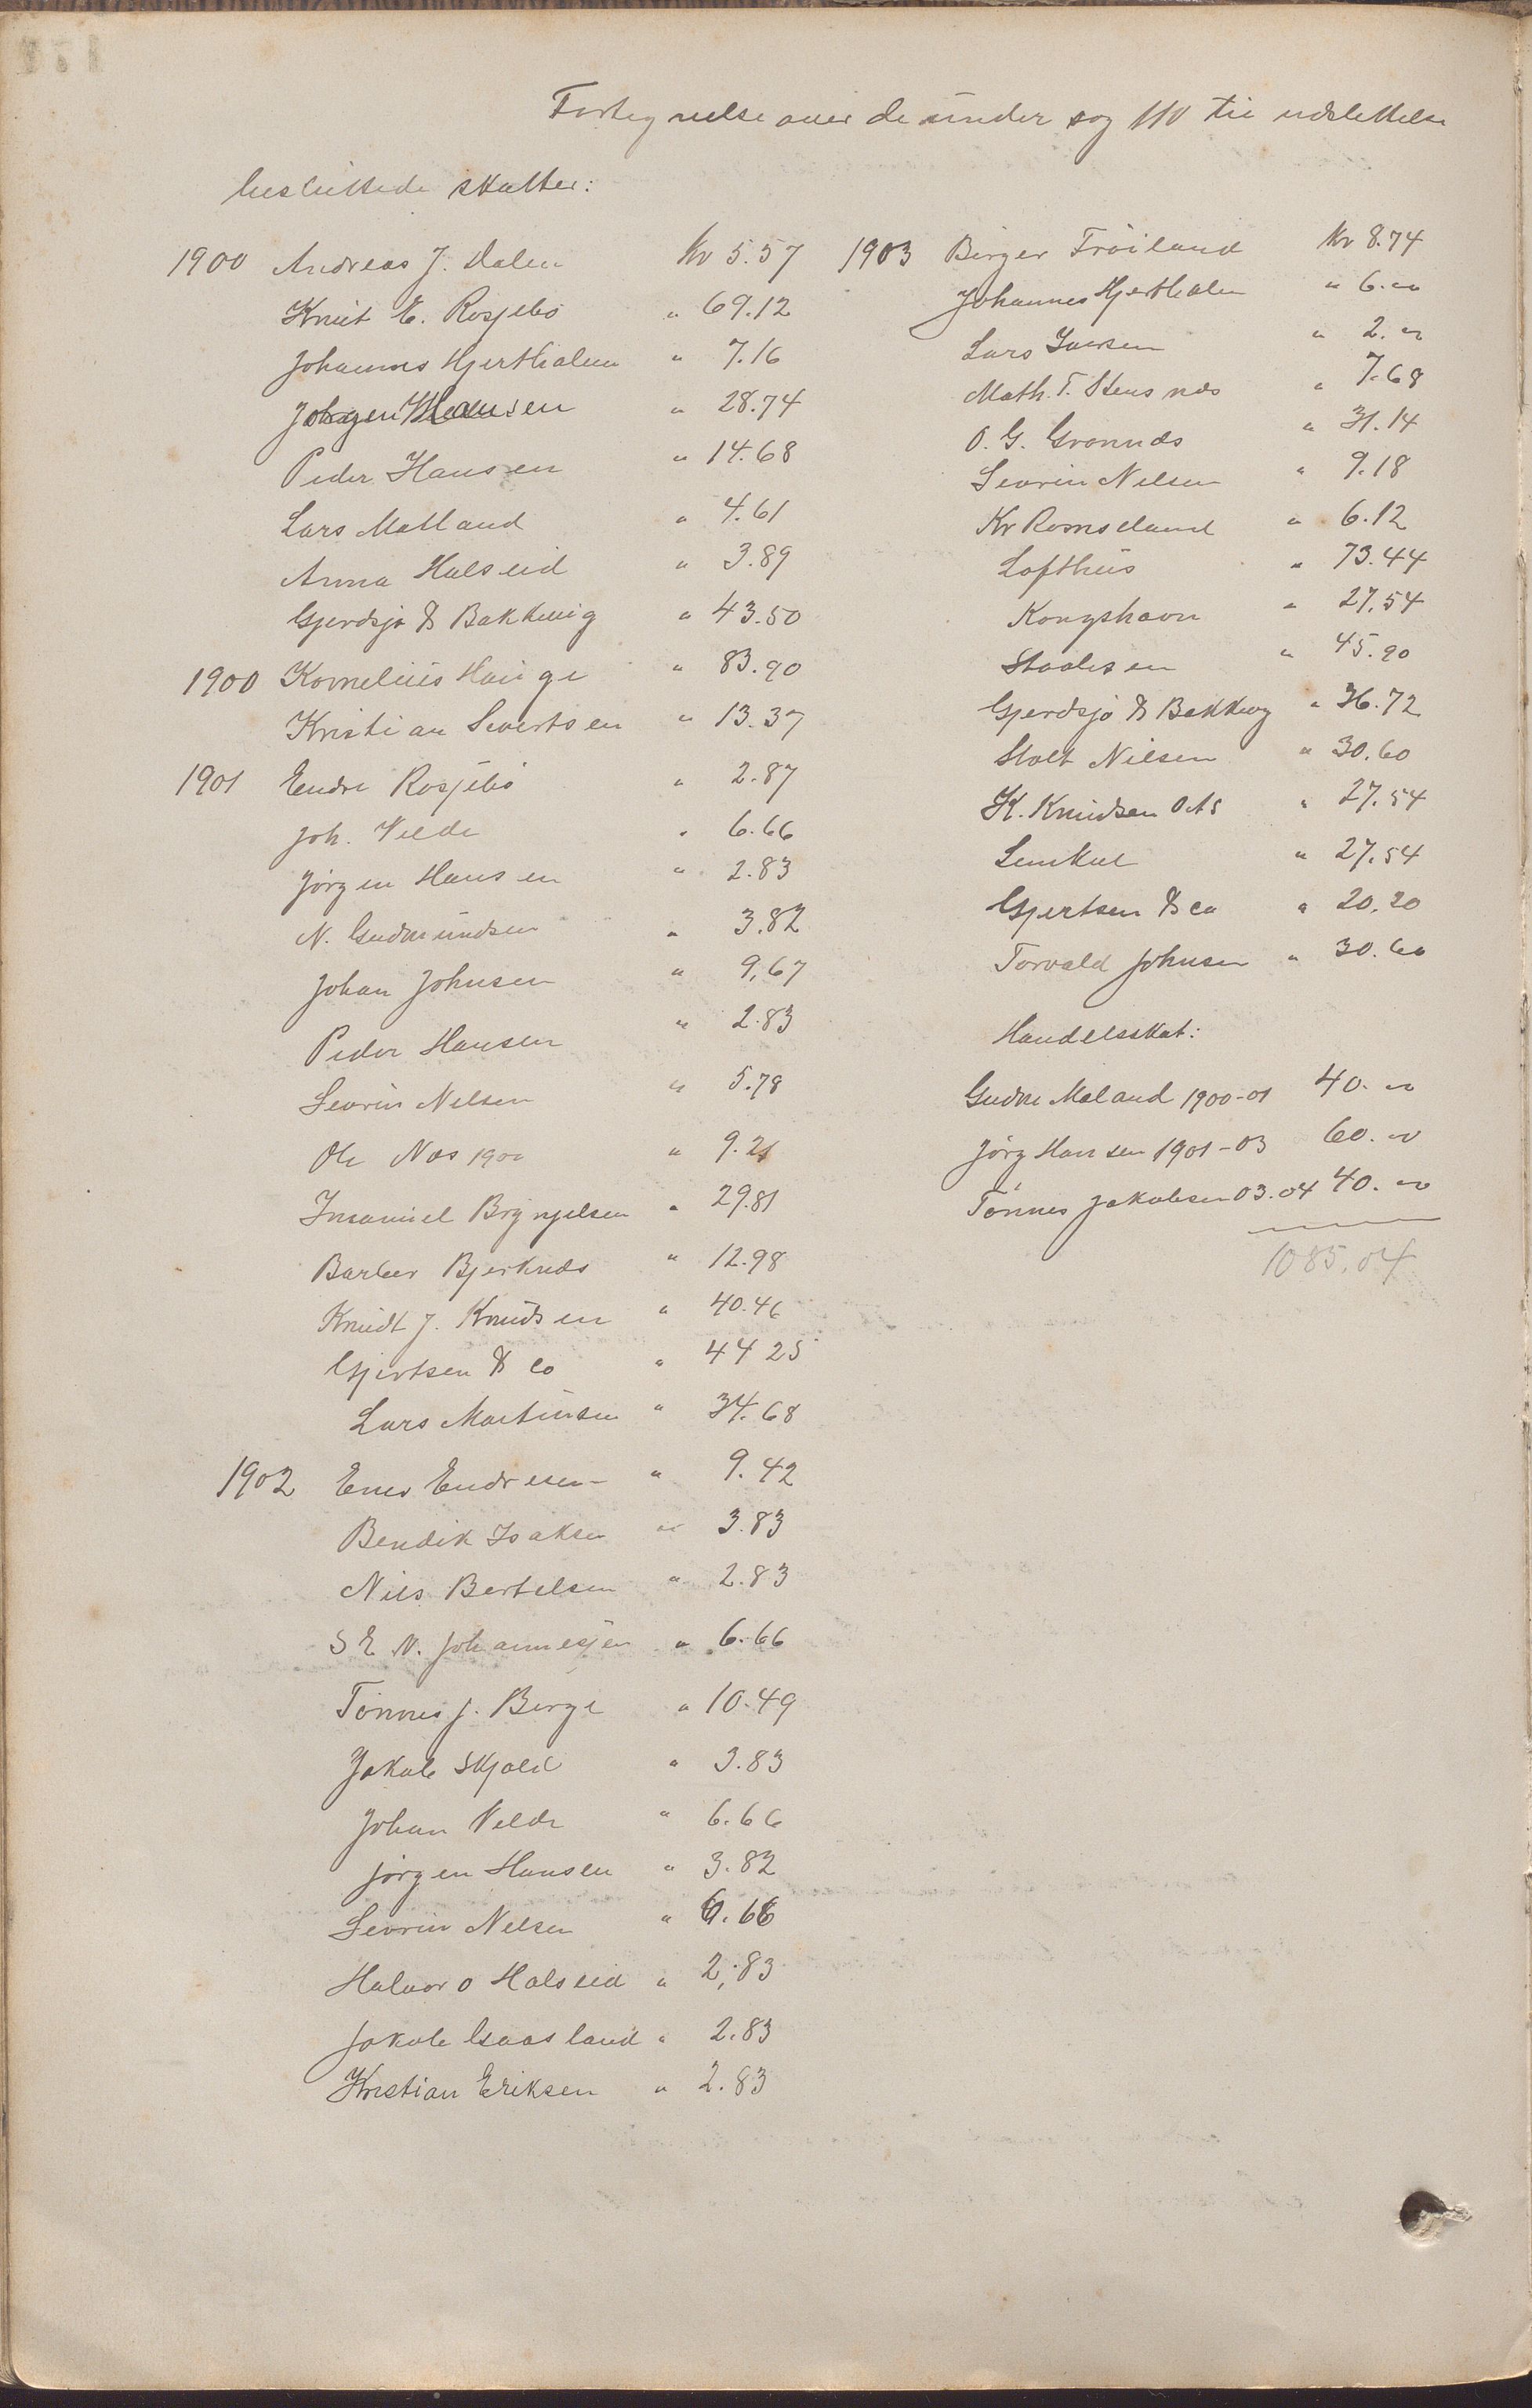 Fortegnelse over de under sag 110 til udslettelse
besluttede skatter:
1900 Andreas J. Dalen Kr 5.57
Knut E. Rosjebö " 69.12
Johannes Hjertholm " 7.16
Jörgen Hansen " 28.74
Peder Hansen " 14.68
Lars Matland " 4.61
Anna Halseid " 3.89
Gjerdsjö & Bakkevig " 43.50
1900 Kornelius Hauge " 83.90
Kristian Sivertsen " 13.37
1901 Endre Rosjebö " 2.87
Joh. Velde " 6.66
Jörgen Hansen " 2.83
N. Gudmundsen " 3.82
Johan Johnsen " 9,67
Peder Hansen " 2.83
Sevrin Nelsen " 5.78
Ole Næs 1900 " 9.21
Brynjelsen " 29.81
Bjerknæs " 12.98
Knudt J. Knudsen " 40.46
Gjertsen & Co " 44 25
Lars Martinsen " 34.68
1902 Endresen " 9.42
Bendik Isaksen " 3.83
Nils Bertelsen " 2.83
S E N. Johannesjen " 6.66
Tönnes J. Berge " 10.49
Jakob Skjold " 3.83
Johan Velde " 6.66
Jörgen Hansen " 3.82
Sevrin Nelsen " 6.66
Halvor O Halseid " 2,83
Jakob Gaasland " 2.83
Kristian Eriksen " 2.83
1903 Birger Fröiland Kr 8.74
Johannes Hjertholm " 6.00
Lars Iversen " 2.00
Math. T. Stensnæs " 7.68
O. G. Grønnæs " 31.14
Sevrin Nelsen " 9.18
Kr Romseland " 6.12
Lofthus " 73.44
Kongshavn " 27.54
Staalesen " 45.90
Gjerdsjö & Bakkevig " 36.72
Stolt Nielsen " 30.60
K. Knudsen OAS " 27.54
Lemkul " 27.54
Gjertsen & Co " 20.20
Torvald Johnsen " 30.60
Handelsskat:
Gudm Maland 1900-01 40.00
Jörg Hansen 1901-03 60.00
Tönnes Jakobsen 03.04 40.00
1085.04